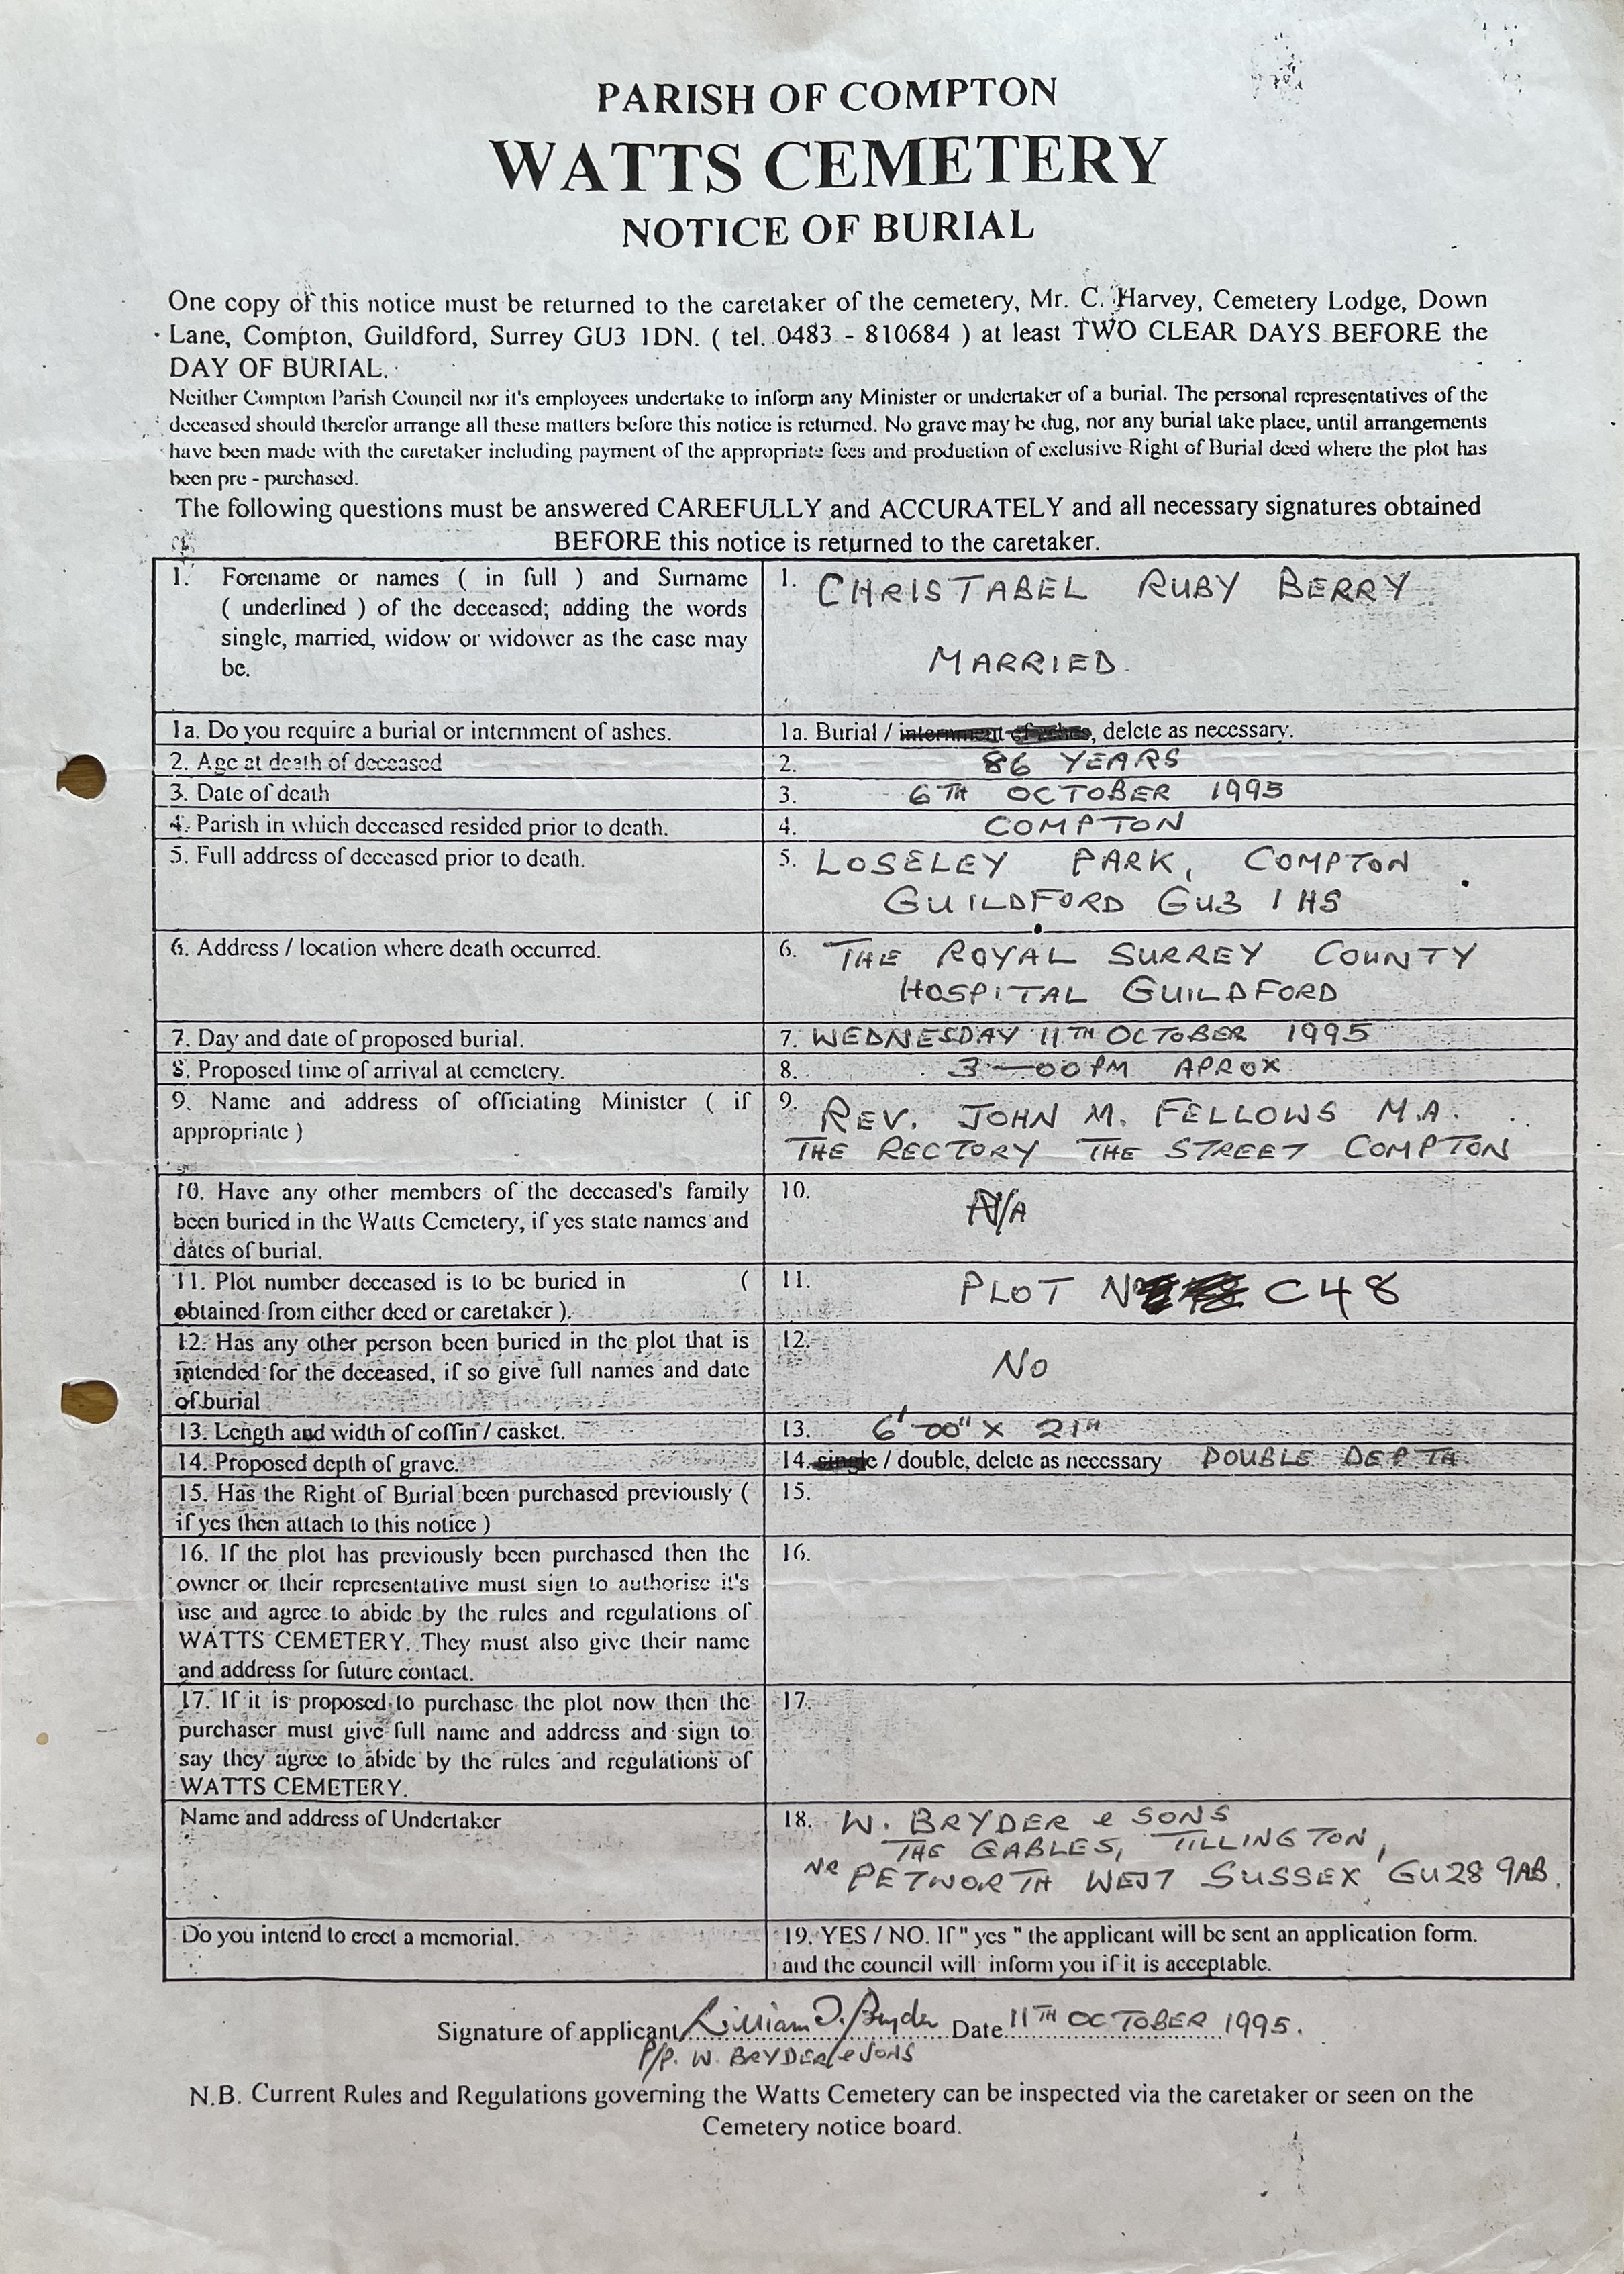 PARISH OF COMPTON
WATTS CEMETERY
NOTICE OF BURIAL
One copy of this notice must be returned to the caretaker of the cemetery, Mr. C. Harvey, Cemetery Lodge, Down
Lane, Compton, Guildford, Surrey GU3 1DN. ( tel. 0483 - 810684 ) at least TWO CLEAR DAYS BEFORE the
DAY OF BURIAL.
Neither Compton Parish Council nor it's employees undertake to inform any Minister or undertaker of a burial. The personal representatives of the
deceased should therefor arrange all these matters before this notice is returned. No grave may be dug, nor any burial take place, until arrangements
have been made with the caretaker including payment of the appropriate fees and production of exclusive Right of Burial deed where the plot has
been pre - purchased.
The following questions must be answered CAREFULLY and ACCURATELY and all necessary signatures obtained
BEFORE this notice is returned to the caretaker.
1. Forename or names ( in full ) and Surname
( underlined ) of the deceased; adding the words
single, married, widow or widower as the case may
be.
1. CHRISTABEL RUBY BERRY
MARRIED
1a. Do you require a burial or internment of ashes.
1a. Burial / internment of ashes, delete as necessary.
2. Age at death of deceased
2. 86 YEARS
3. Date of death
3. 6TH OCTOBER 1995
4. Parish in which deceased resided prior to death.
4. COMPTON
5. Full address of deceased prior to death.
5. LOSELEY PARK, COMPTON
GUILDFORD GU3 1HS
6. Address / location where death occurred.
6. THE ROYAL SURREY COUNTY
HOSPITAL GUILDFORD
7. Day and date of proposed burial.
7. WEDNESDAY 11TH OCTOBER 1995
8. Proposed time of arrival at cemetery.
8. 3-00PM APROX
9. Name and address of officiating Minister ( if
appropriate )
9. REV. JOHN M. FELLOWS M.A.
THE RECTORY THE STREET COMPTON
10. Have any other members of the deceased's family
been buried in the Watts Cemetery, if yes state names and
dates of burial.
10. N/A
11. Plot number deceased is to be buried in (
obtained from either deed or caretaker ).
11. PLOT C48
12. Has any other person been buried in the plot that is
intended for the deceased, if so give full names and date
of burial
12. NO
13. Length and width of coffin / casket.
13. 6'-00" X 21"
14. Proposed depth of grave.
14. single / double, delete as necessary DOUBLE DEPTH
15. Has the Right of Burial been purchased previously (
if yes then attach to this notice )
15.
16. If the plot has previously been purchased then the
owner or their representative must sign to authorise it's
use and agree to abide by the rules and regulations of
WATTS CEMETERY. They must also give their name
and address for future contact.
16.
17. If it is proposed to purchase the plot now then the
purchaser must give full name and address and sign to
say they agree to abide by the rules and regulations of
WATTS CEMETERY.
17.
Name and address of Undertaker
18. W. BRYDER & SONS
THE GABLES, TILLINGTON,
NR PETWORTH WEST SUSSEX GU28 9AB.
Do you intend to erect a memorial.
19. YES / NO. If " yes " the applicant will be sent an application form.
and the council will inform you if it is acceptable.
Signature of applicant William D. Bryder Date 11TH OCTOBER 1995.
P/P. W. BRYDER & SONS
N.B. Current Rules and Regulations governing the Watts Cemetery can be inspected via the caretaker or seen on the
Cemetery notice board.